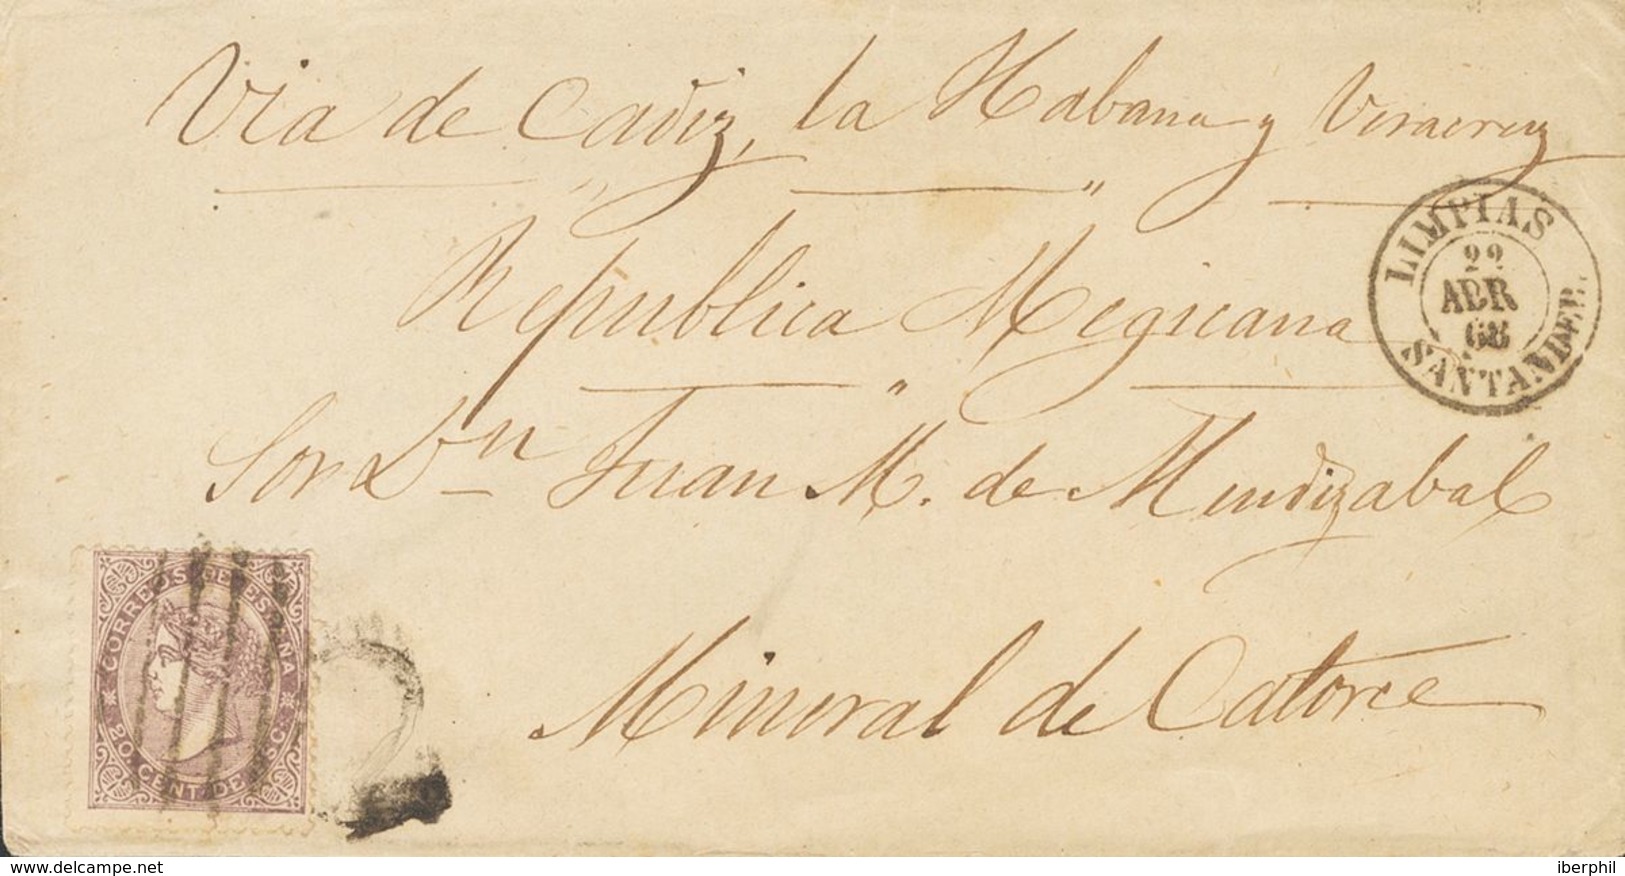 Via de Cadiz, la Habana y Veracruz
Republica Megicana
Sor Dn Juan M. de Mendizabal
Mineral de Catorce
LIMPIAS
22
ABR
68
SANTANDER.
* CORREOS DE ESPAÑA *
20. CENT. DE ESC.
© www.delcampe.net
iberphil